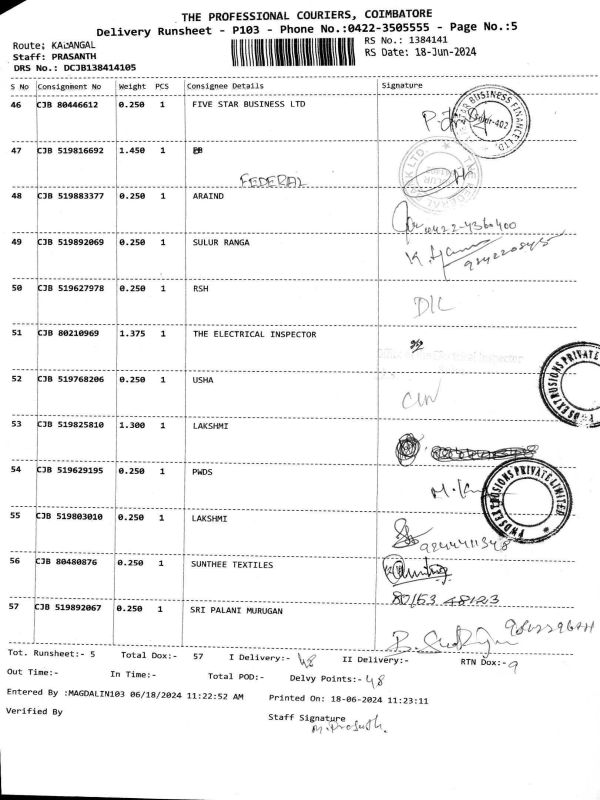 THE PROFESSIONAL COURIERS, COIMBATORE
Delivery Runsheet - P103 - Phone No.:0422-3505555 - Page No.:5
Route: KADANGAL RS No.: 1384141
Staff: PRASANTH RS Date: 18-Jun-2024
DRS No.: DCJB138414105
S No Consignment No Weight PCS Consignee Details Signature
46 CJB 80446612 0.250 1 FIVE STAR BUSINESS LTD
47 CJB 519816692 1.450 1
FEDERAL
48 CJB 519883377 0.250 1 ARAIND
0422-4360400
49 CJB 519892069 0.250 1 SULUR RANGA
50 CJB 519627978 0.250 1 RSH
D/L
51 CJB 80210969 1.375 1 THE ELECTRICAL INSPECTOR
Electrical Inspector
52 CJB 519768206 0.250 1 USHA
53 CJB 519825810 1.300 1 LAKSHMI
54 CJB 519629195 0.250 1 PWDS
PWDS EXTRUSIONS PRIVATE LIMITED
55 CJB 519803010 0.250 1 LAKSHMI
56 CJB 80480876 0.250 1 SUNTHEE TEXTILES
57 CJB 519892067 0.250 1 SRI PALANI MURUGAN
Tot. Runsheet:- 5 Total Dox:- 57 I Delivery:- 48 II Delivery:- RTN Dox:- 9
Out Time:- In Time:- Total POD:- Delvy Points:- 48
Entered By :MAGDALIN103 06/18/2024 11:22:52 AM Printed On: 18-06-2024 11:23:11
Verified By Staff Signature